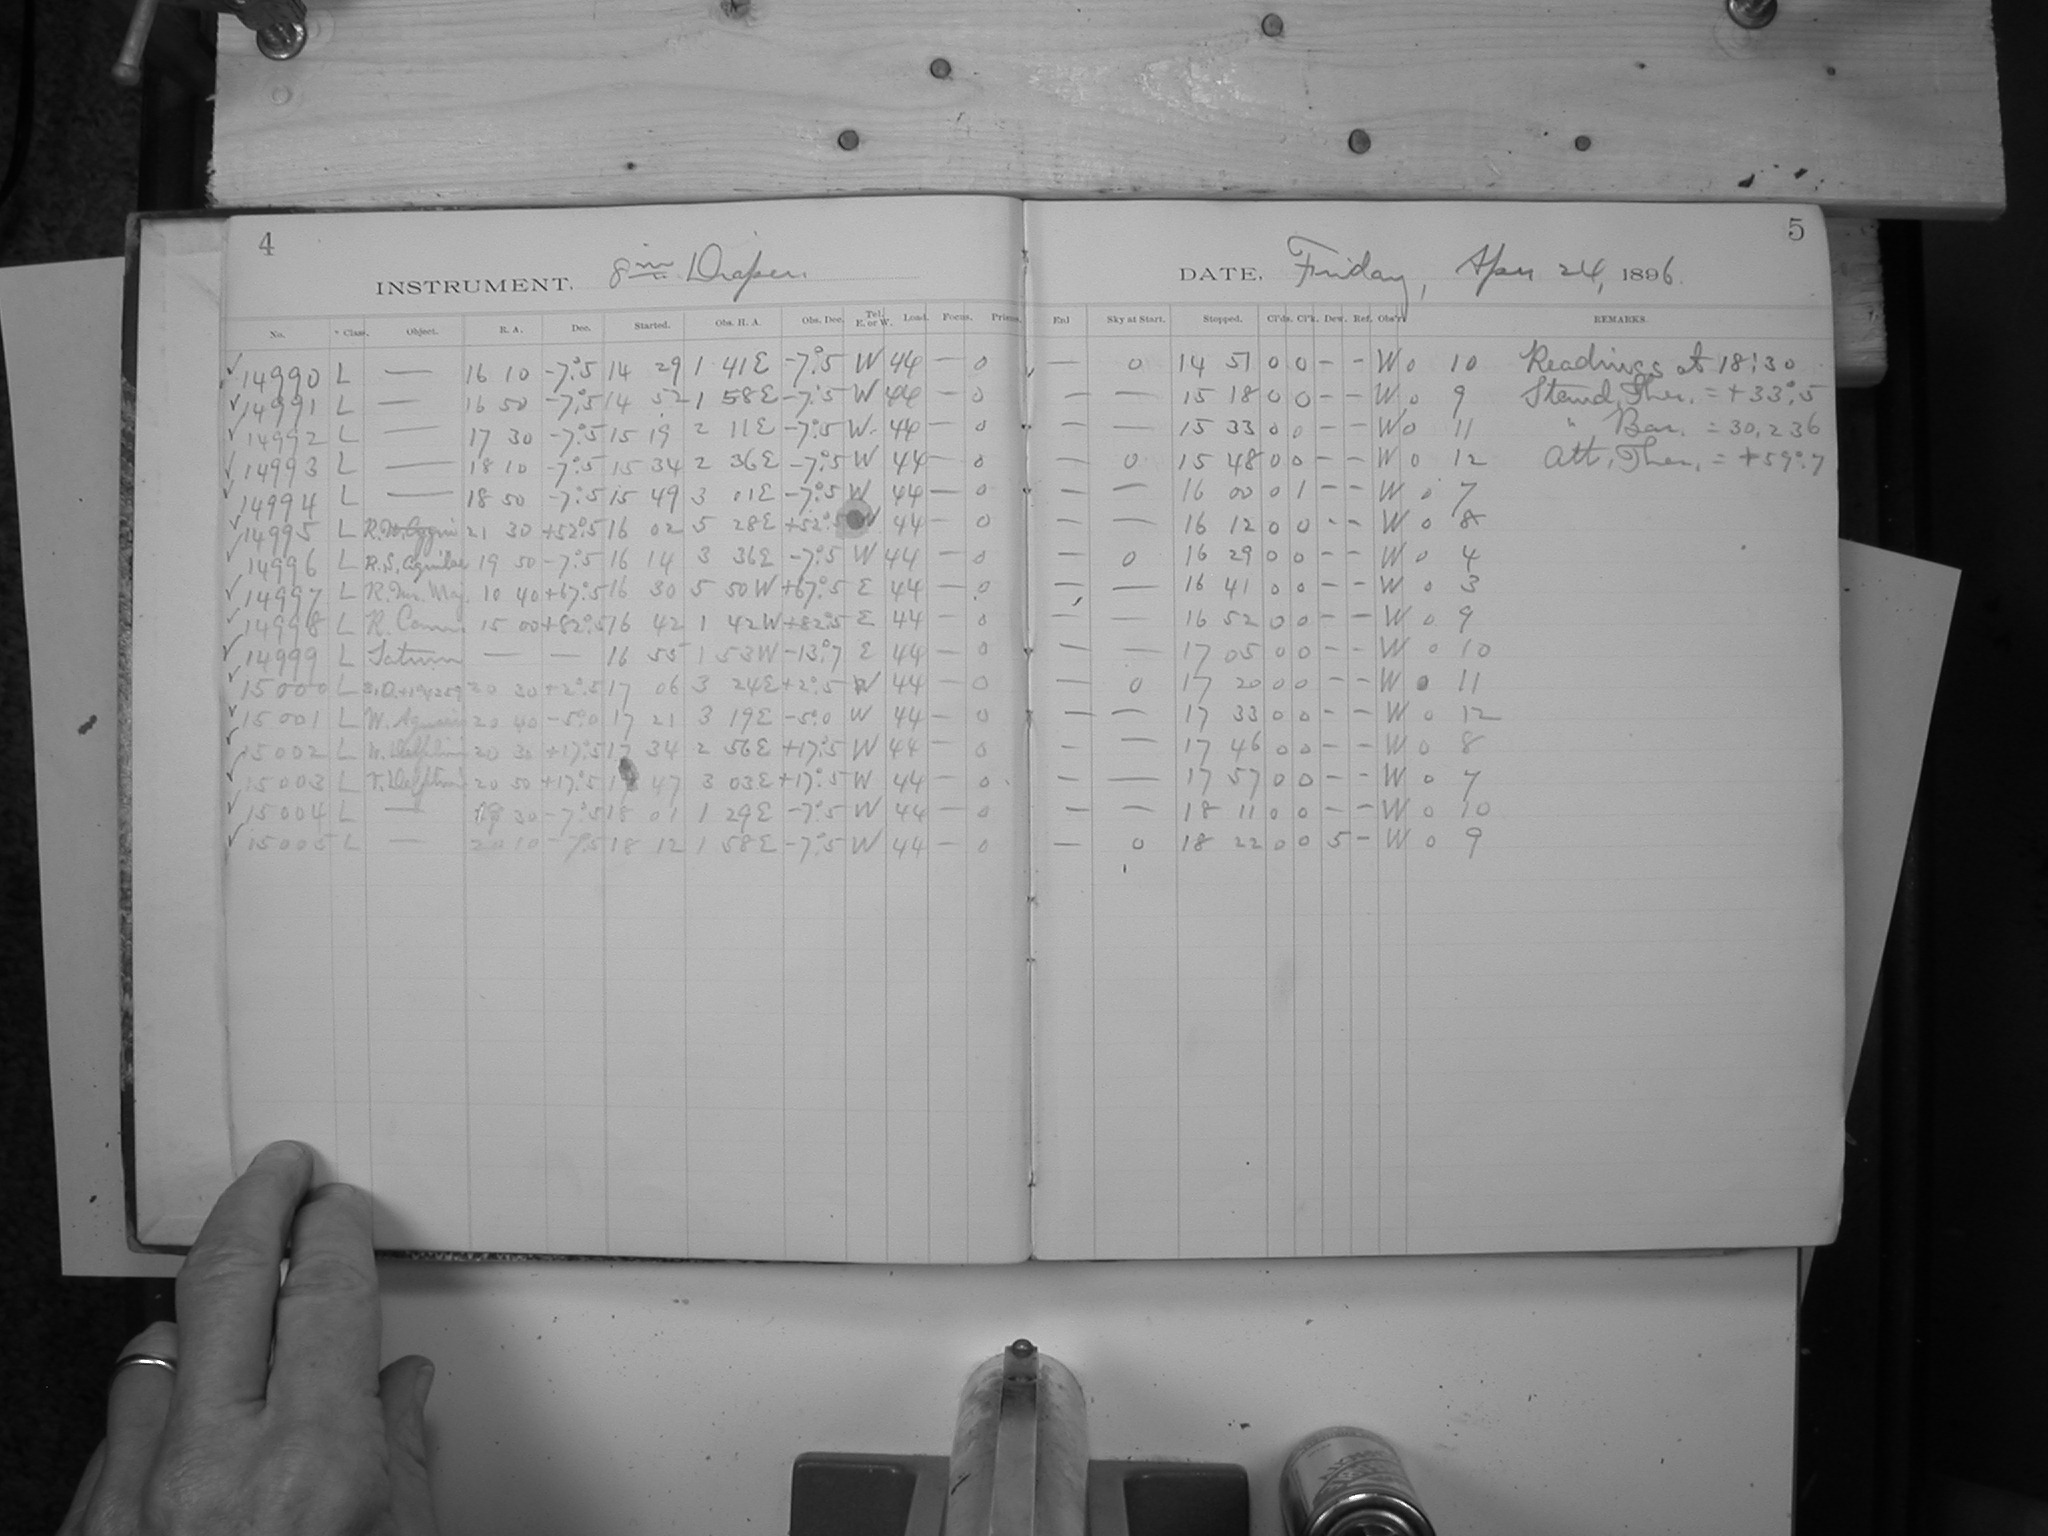 4
INSTRUMENT. 8 in Draper.
No. Class. Object. R. A. Dec. Started. Obs. H. A. Obs. Dec. Tel. E. or W. Load. Focus. Prisms.
14990 L — 16 10 -7°.5 14 29 1 41E -7°.5 W 44 — 0
14991 L — 16 50 -7°.5 14 52 1 58E -7°.5 W 44 — 0
14992 L — 17 30 -7°.5 15 19 2 11E -7°.5 W. 44 — 0
14993 L — 18 10 -7°.5 15 34 2 36E -7°.5 W 44 — 0
14994 L — 18 50 -7°.5 15 49 3 01E -7°.5 W 44 — 0
14995 L 21 30 +52°.5 16 02 5 28E +52°.5 W 44 — 0
14996 L R.S. Aquilae 19 50 -7°.5 16 14 3 36E -7°.5 W 44 — 0
14997 L R. Urs. Maj. 10 40 +67°.5 16 30 5 50W +67°.5 E 44 — 0
14998 L R. Cam. 15 00 +82°.5 16 42 1 42W +82°.5 E 44 — 0
14999 L Saturn — — 16 55 1 53W -13°.7 E 44 — 0
15000 L 20 30 +2°.5 17 06 3 24E +2°.5 W 44 — 0
15001 L W. Aquarii 20 40 -5°.0 17 21 3 19E -5°.0 W 44 — 0
15002 L W. Delphini 20 30 +17°.5 17 34 2 56E +17°.5 W 44 — 0
15003 L V. Delphini 20 50 +17°.5 17 47 3 03E +17°.5 W 44 — 0
15004 L — 19 30 -7°.5 18 01 1 29E -7°.5 W 44 — 0
15005 L — 20 10 -7°.5 18 12 1 58E -7°.5 W 44 — 0
5
DATE, Friday, Apr 24, 1896.
Enl Sky at Start. Stopped. Cl'ds. Cl'k. Dew. Ref. Obs'r. REMARKS.
— 0 14 51 0 0 - - W 0 10 Readings at 18:30
— — 15 18 0 0 - - W 0 9 Stand. Ther. = +33°.5
— — 15 33 0 0 - - W 0 11 " Bar. = 30.236
— 0 15 48 0 0 - - W 0 12 Att. Ther. = +59°.7
— — 16 00 0 1 - - W 0 7
— — 16 12 0 0 - - W 0 8
— 0 16 29 0 0 - - W 0 4
— — 16 41 0 0 - - W 0 3
— — 16 52 0 0 - - W 0 9
— — 17 05 0 0 - - W 0 10
— 0 17 20 0 0 - - W 0 11
— — 17 33 0 0 - - W 0 12
— — 17 46 0 0 - - W 0 8
— — 17 57 0 0 - - W 0 7
— — 18 11 0 0 - - W 0 10
— 0 18 22 0 0 5 - W 0 9